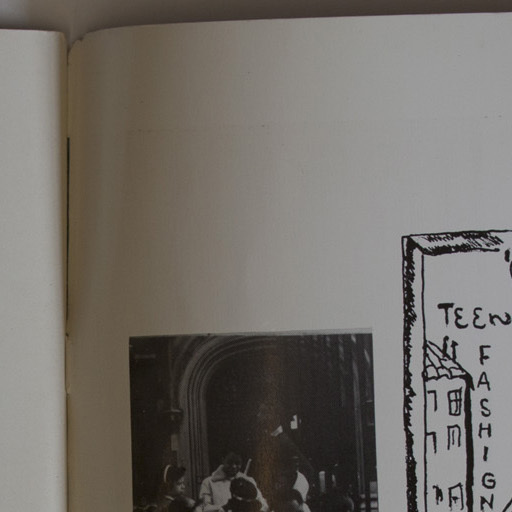 TEEN
FASHIGN